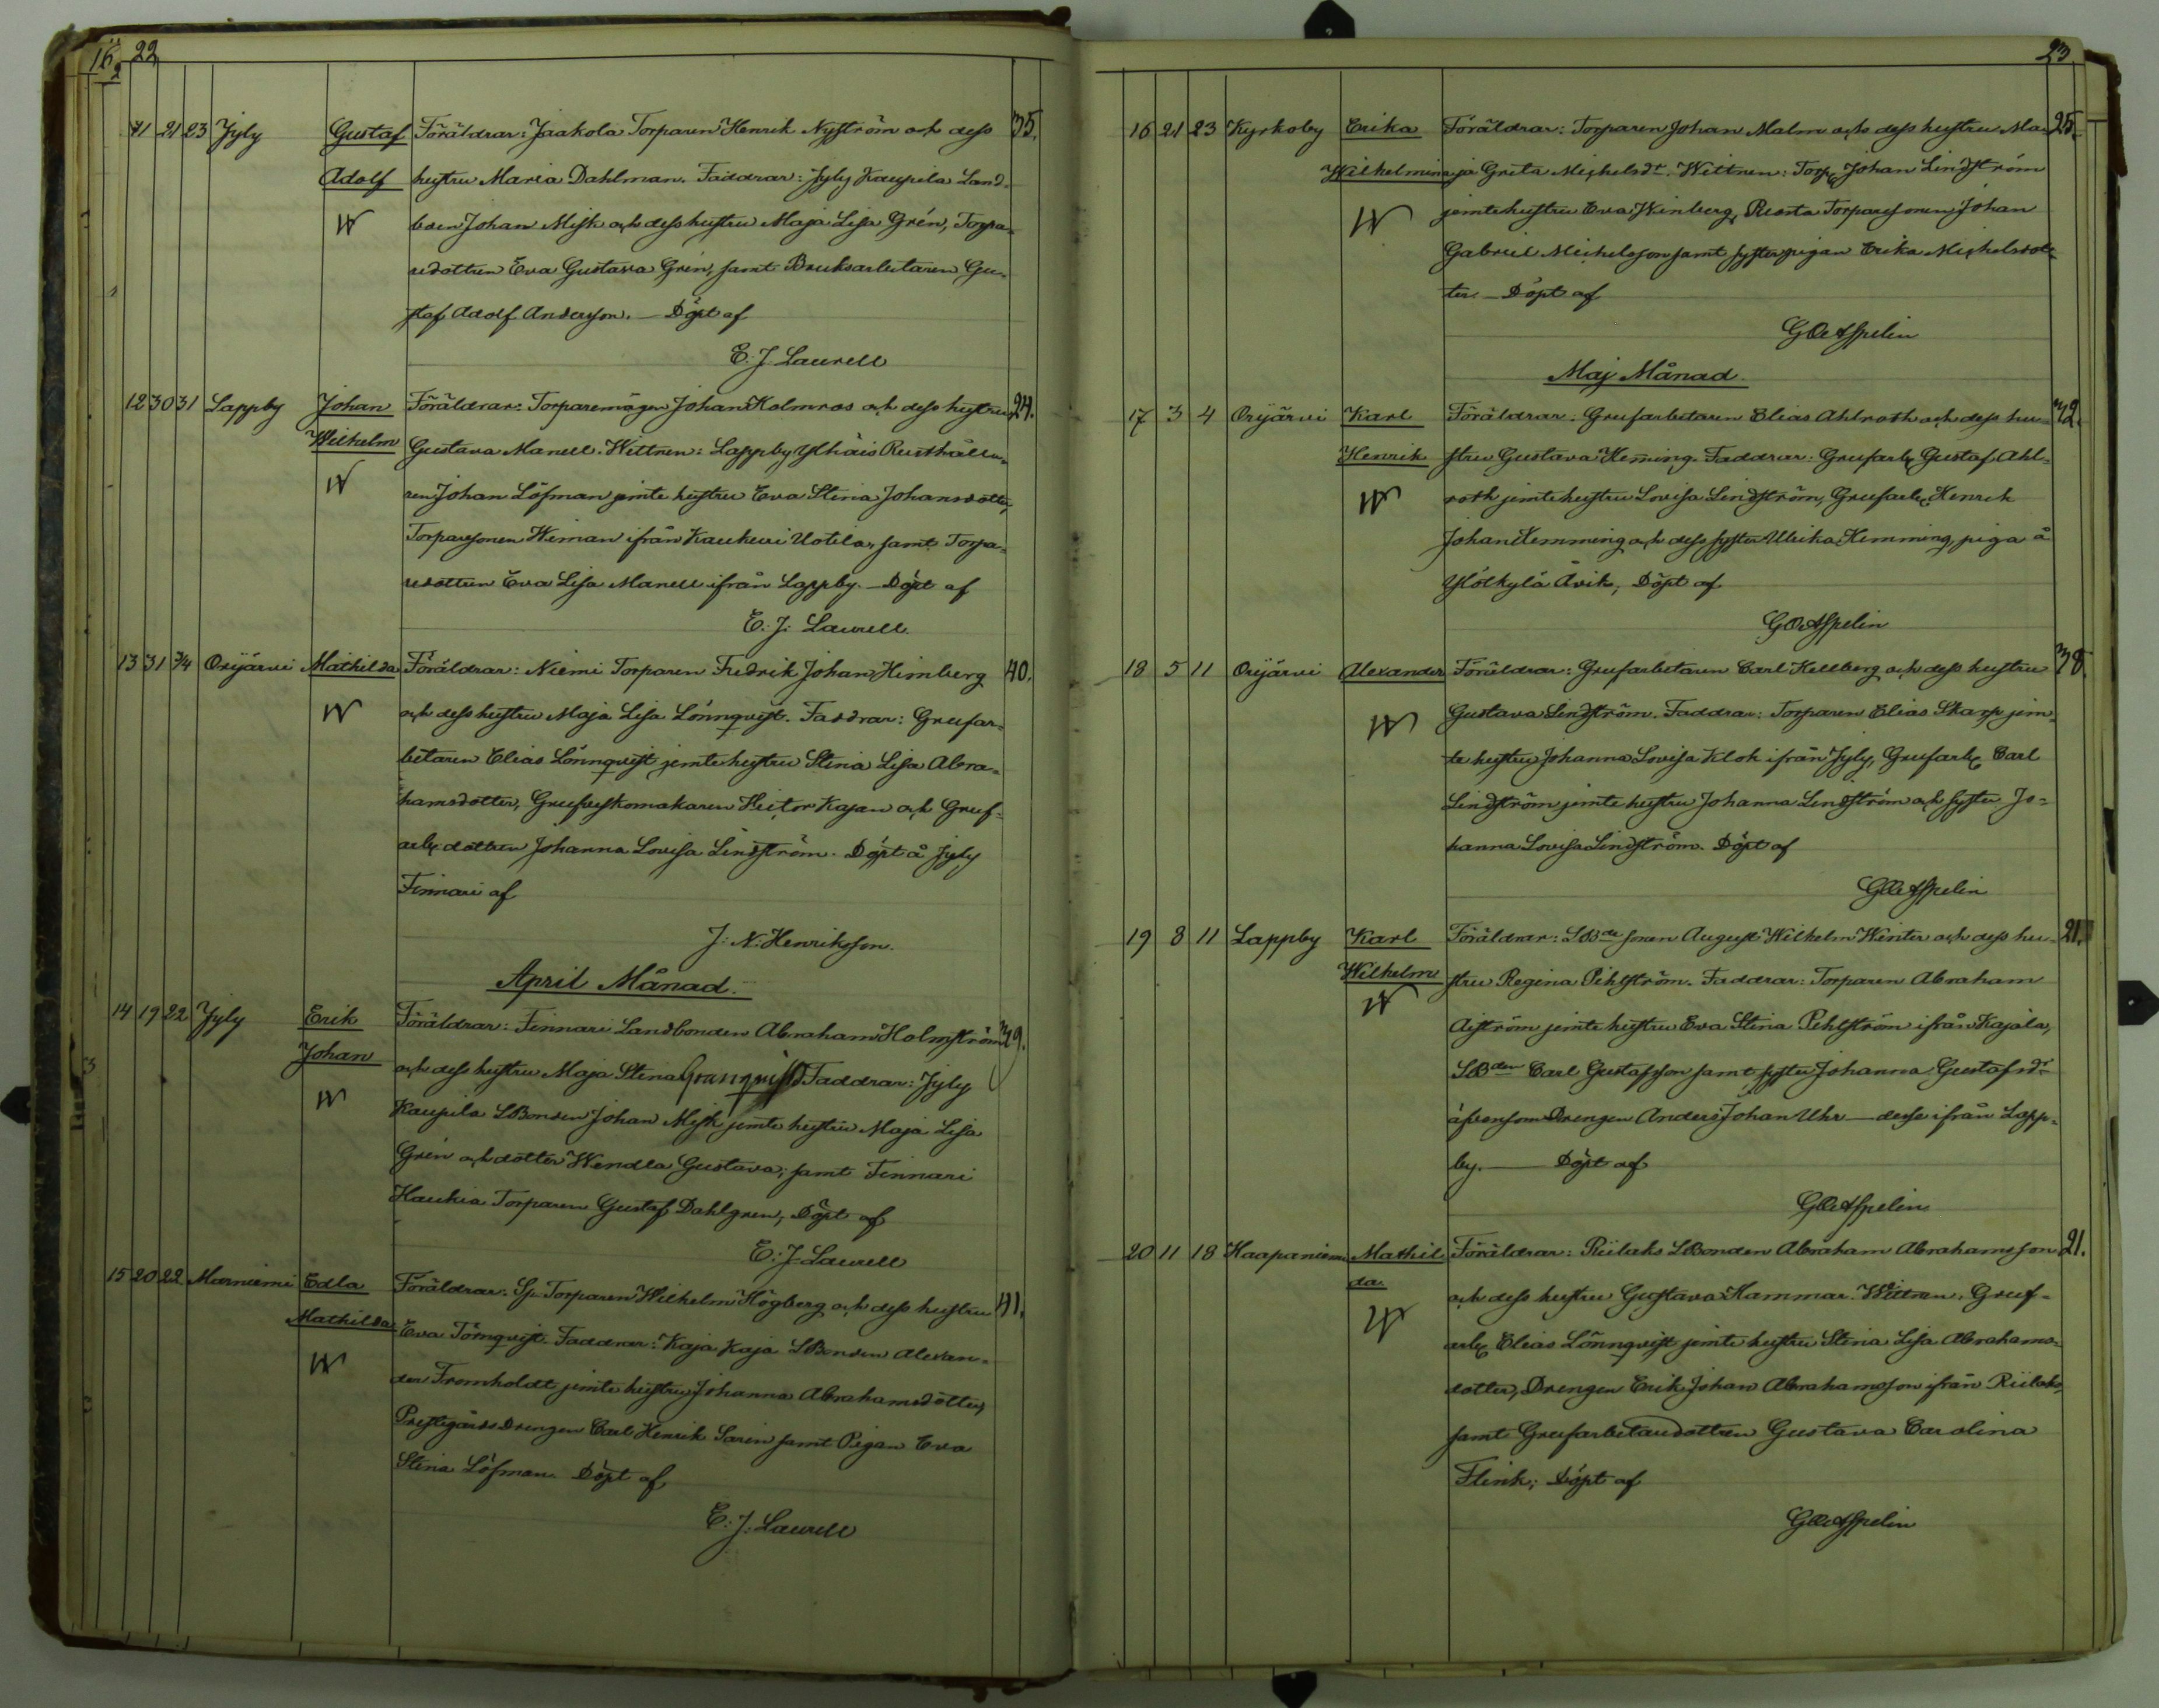 22
11 21 23 Jyly Gustaf Föräldrar: Jaakola Torparen Henrik Nyström och dess 35.
Adolf hustru Maria Dahlman. Faddrar: Jyly Kaupila Land-
boen Johan Misk och dess hustru Maja Lisa Grén, Torpa-
redottren Eva Gustava Grén, samt Bruksarbetaren Gu-
staf Adolf Andersson. — Döpt af
E. J. Laurell
12 30 31 Lappby Johan Föräldrar: Torparemågen Johan Holmros och dess hustru 24.
Wilhelm Gustava Manell. Wittnen: Lappby Ylhäis Rusthålla-
ren Johan Löfman jemte hustru Eva Stina Johansdotter,
Torparesonen Wiman ifrån Kaukuri Uotila, samt Torpa-
redottren Eva Lisa Manell ifrån Lappby. — Döpt af
E. J. Laurell.
13 31 3/4 Orijärvi Mathilda Föräldrar: Niemi Torparen Fredrik Johan Himberg 40.
och dess hustru Maja Lisa Lönnqvist. Faddrar: Grufar-
betaren Elias Lönnqvist jemte hustru Stina Lisa Abra-
hamsdotter, Grufveskomakaren Hector Kajan och Gruf-
arb. dottren Johanna Lovisa Lindström. Döpt å Jyly
Finnari af
J. N. Henriksson.
April Månad.
14 19 22 Jyly Erik Föräldrar: Finnari Landbonden Abraham Holmström 29.
Johan och dess hustru Maja Stina Granqvist Faddrar: Jyly
Kaupila LBonden Johan Misk jemte hustru Maja Lisa
Grén och dotter Wendla Gustava; samt Finnari
Haukia Torparen Gustaf Dahlgren, Döpt af
E. J. Laurell
15 20 22 Marniemi Edla Föräldrar: Sp. Torparen Wilhelm Högberg och dess hustru 41.
Mathilda Eva Törnqvist. Faddrar: Kaja Kaja LBonden Alexan-
der Fromholdt jemte hustru Johanna Abrahamsdotter,
Prestgårds Drengen Carl Henrik Sarin samt Pigan Eva
Stina Löfman. Döpt af
E. J. Laurell
23
16 21 23 Kyrkoby Erika Föräldrar: Torparen Johan Malm och dess hustru Ma- 25.
Wilhelmina ja Greta Michelsdr. Wittnen: Torp. Johan Lindström
jemte hustru Eva Winberg, Torparesonen Johan
Gabriel Michelsson samt syster pigan Erika Michelsdot-
ter. — Döpt af
G O Aspelin
Maj Månad.
17 3 4 Orijärvi Karl Föräldrar: Grufarbetaren Elias Ahlroth och dess hu- 32.
Henrik stru Gustava Heming. Faddrar: Grufarb. Gustaf Ahl-
roth jemte hustru Lovisa Lindström, Grufarb. Henrik
Johan Hemming och dess syster Ulrika Hemming, piga å
Ylöskylä Åvik, Döpt af
G O Aspelin
18 5 11 Orijärvi Alexander Föräldrar: Grufarbetaren Carl Kellberg och dess hustru 38.
Gustava Lindström. Faddrar: Torparen Elias Skarp jem-
te hustru Johanna Lovisa Klok ifrån Jyly, Grufarb. Carl
Lindström jemte hustru Johanna Lindström och syster Jo-
hanna Lovisa Lindström. Döpt af
G O Aspelin
19 8 11 Lappby Karl Föräldrar: LBde sonen August Wilhelm Winter och dess hu- 21.
Wilhelm stru Regina Pihlström. Faddrar: Torparen Abraham
Aiström jemte hustru Eva Stina Pehlström ifrån Kajala,
LBden Carl Gustafsson samt syster Johanna Gustafsdr
äfvensom Drengen Anders Johan Uhr — desse ifrån Lapp-
by. — Döpt af
G O Aspelin
20 11 18 Haapaniemi Mathil- Föräldrar: Riilaks LBonden Abraham Abrahamsson 21.
da. och dess hustru Gustava Hammar. Wittnen: Gruf-
arb. Elias Lönnqvist jemte hustru Stina Lisa Abrahams-
dotter, Drengen Erik Johan Abrahamsson ifrån Riilaks,
samt Grufarbetaredottren Gustava Carolina
Flink; Döpt af
G O Aspelin